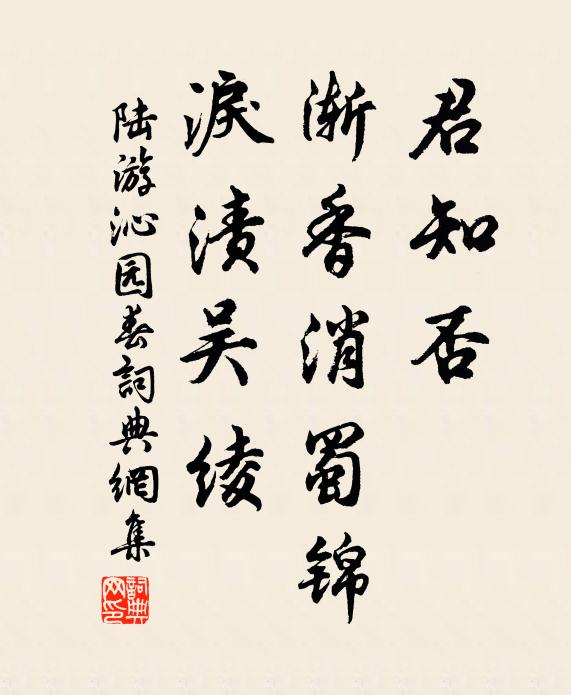 君知否
渐香消蜀锦
淚渍吴绫
陆游沁园春詞典網集
詞典
网印